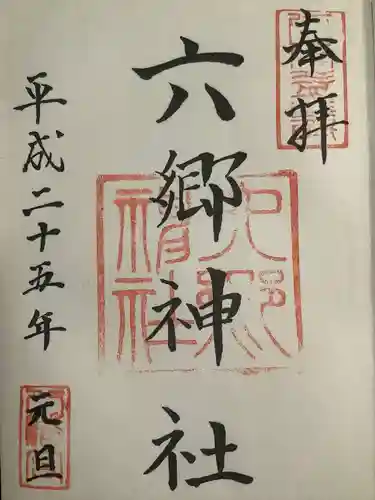 奉拝
六郷神社
平成二十五年
元旦